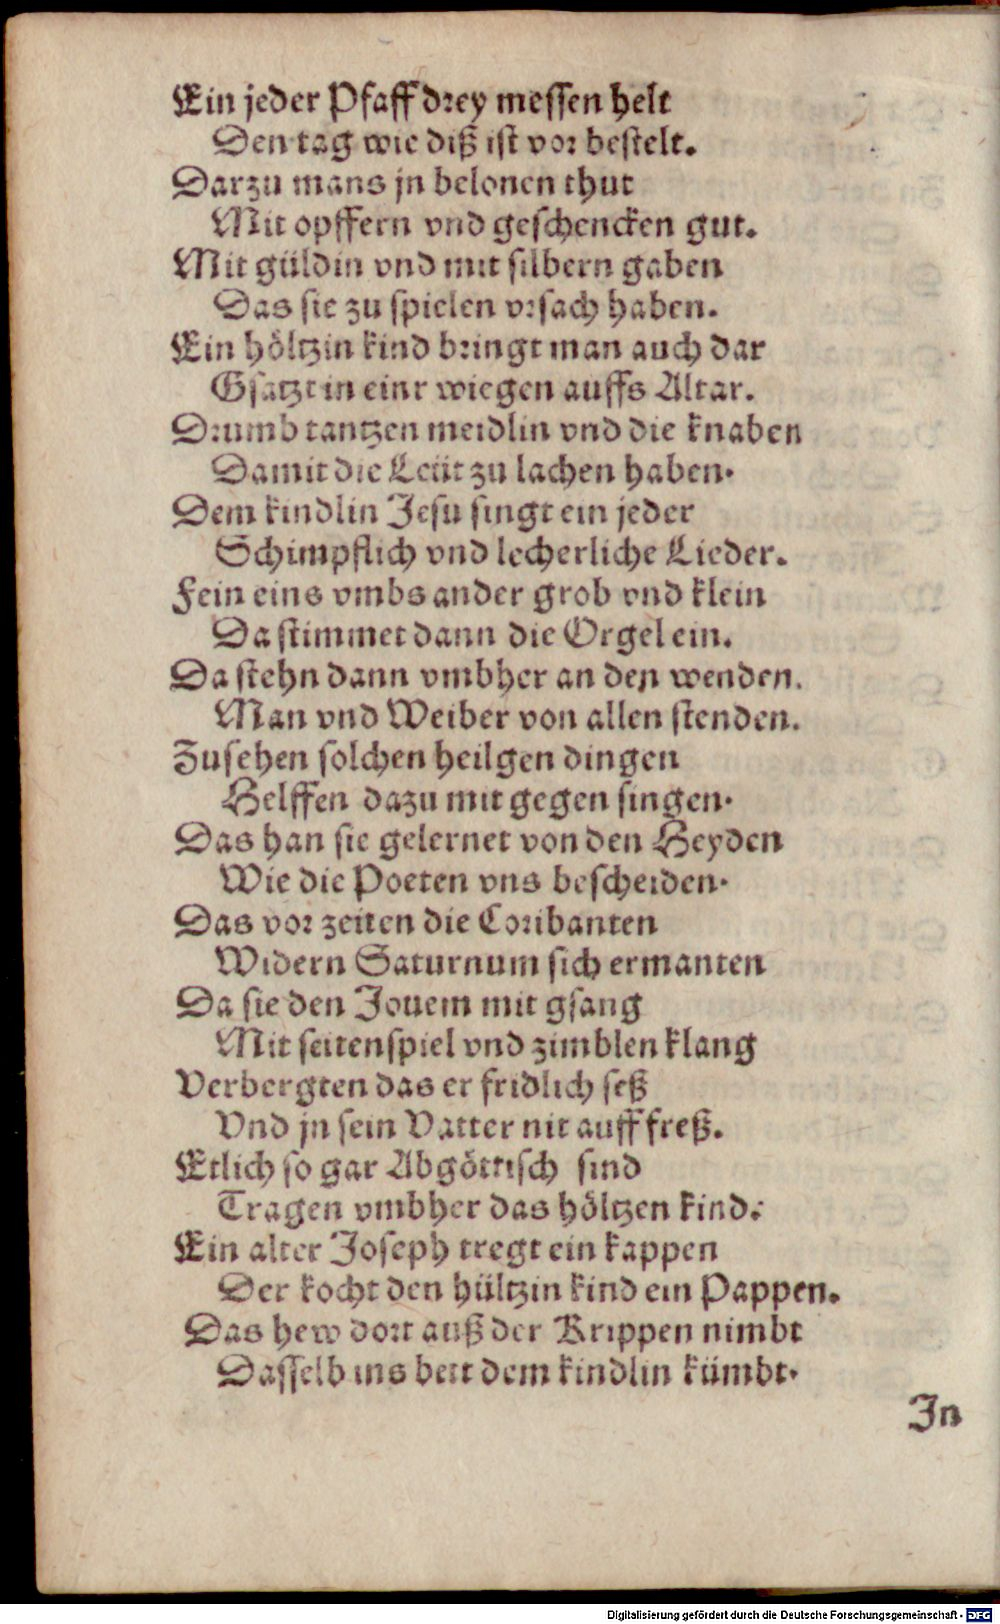 Ein jeder Pfaff drey messen helt
Den tag wie diß ist vor bestelt.
Darzu mans jn belonen thut
Mit opffern vnd geschencken gut.
Mit güldin vnd mit silbern gaben
Das sie zu spielen vrsach haben.
Ein höltzin kind bringt man auch dar
Gsatzt in einr wiegen auffs Altar.
Drumb tantzen meidlin vnd die knaben
Damit die Leüt zu lachen haben.
Dem kindlin Jesu singt ein jeder
Schimpflich vnd lecherliche Lieder.
Fein eins vmbs ander grob vnd klein
Da stimmet dann die Orgel ein.
Da stehn dann vmbher an den wenden.
Man vnd Weiber von allen stenden.
Zusehen solchen heilgen dingen
Helffen dazu mit gegen singen.
Das han sie gelernet von den Heyden
Wie die Poeten vns bescheiden.
Das vor zeiten die Coribanten
Widern Saturnum sich ermanten
Da sie den Jouem mit gsang
Mit seitenspiel vnd zimblen klang
Verbergten das er fridlich seß
Vnd jn sein Vatter nit auff freß.
Etlich so gar Abgöttisch sind
Tragen vmbher das höltzen kind.
Ein alter Joseph tregt ein kappen
Der kocht den hültzin kind ein Pappen.
Das hew dort auß der Krippen nimbt
Dasselb ins bett dem kindlin kümbt.
In
Digitalisierung gefördert durch die Deutsche Forschungsgemeinschaft - DFG